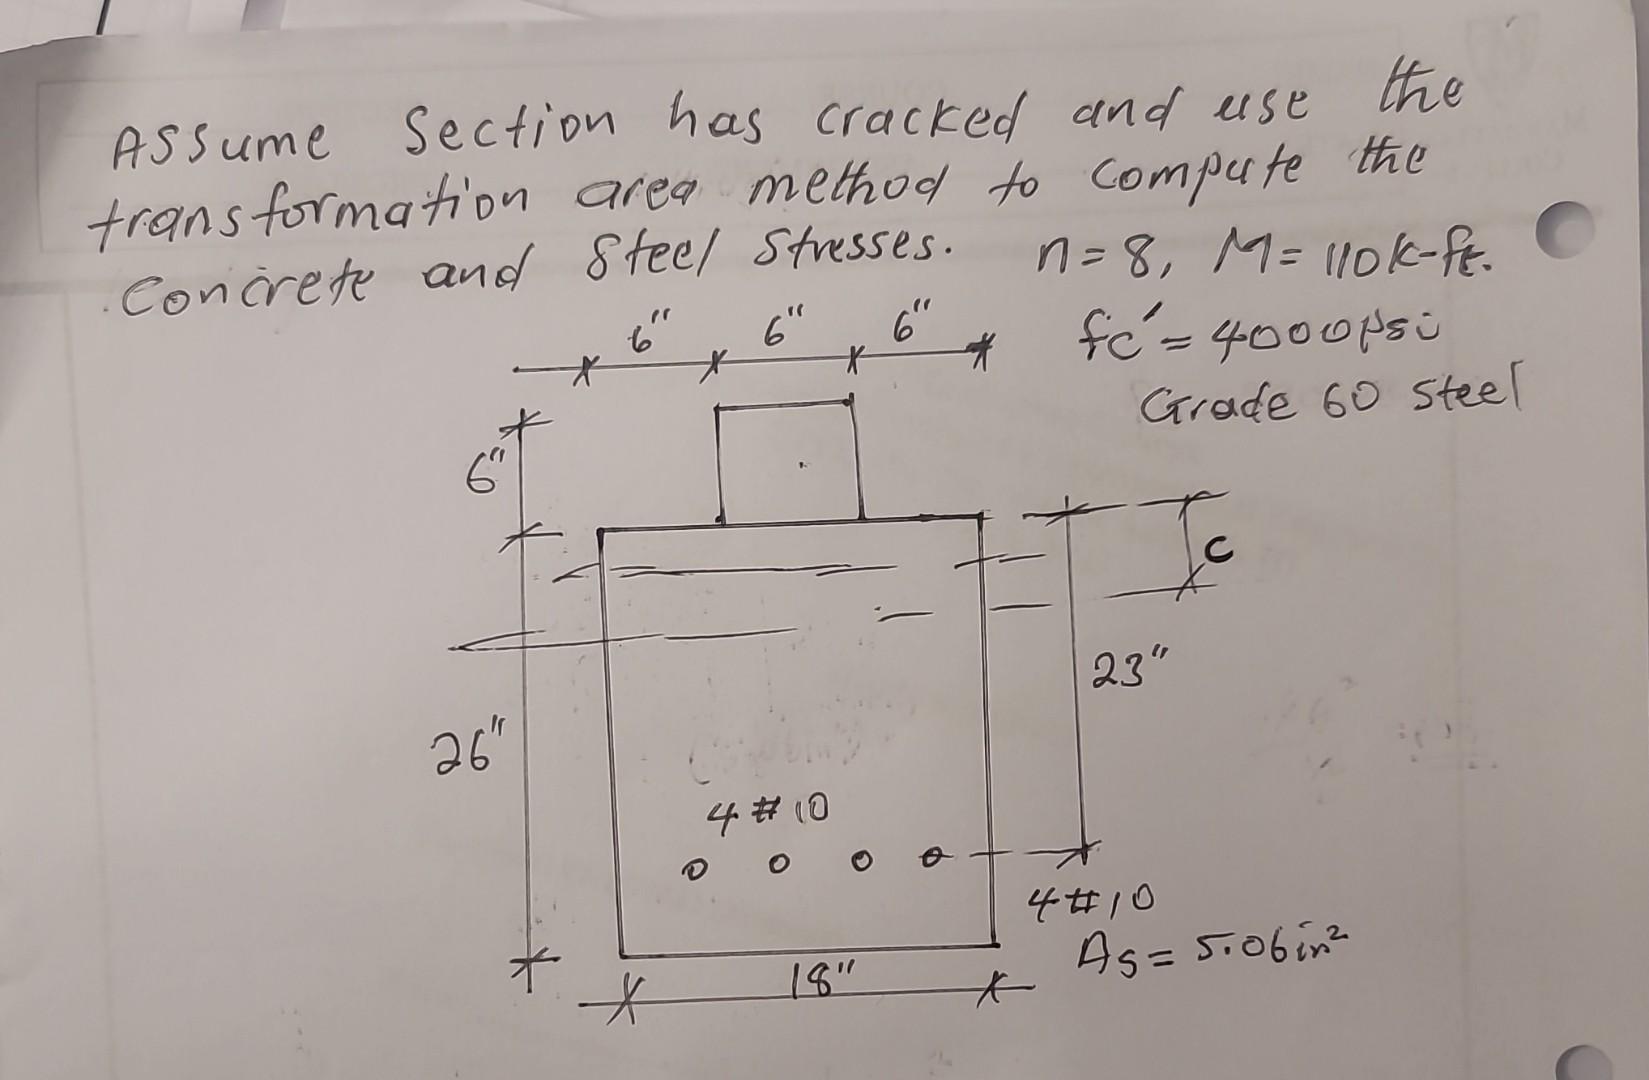 Assume Section has cracked and use the
transformation area method to compute the
Concrete and Steel Stresses. n=8, M=110k-ft.
6" 6" 6" fc'=4000psi
Grade 60 Steel
6"
C
23"
26"
4#10
4#10
As=5.06in²
18"